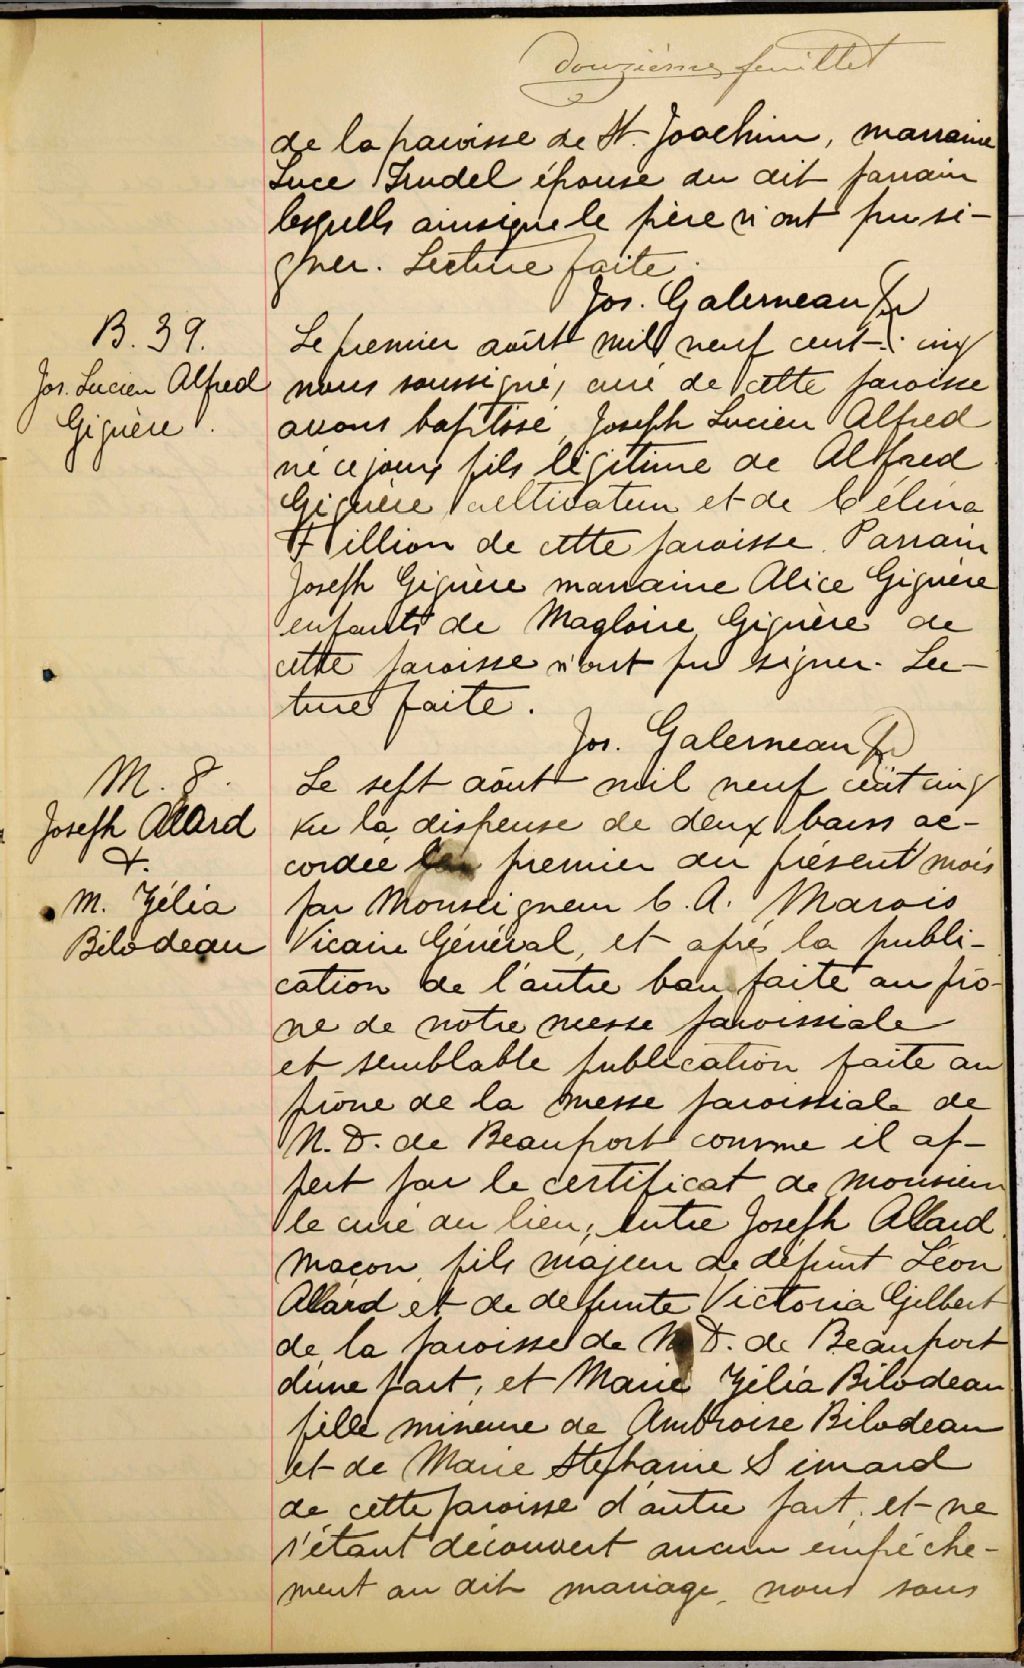 douzième feuillet
de la paroisse de St. Joachim, marraine
Luce Trudel épouse du dit parrain
lesquells ainsi que le père n'ont pu si-
gner. Lecture faite.
Jos. Galerneau Ptr
B. 39.
Jos. Lucien Alfred
Giguère.
Le premier août mil neuf cent-cinq
nous soussigné, curé de cette paroisse
avons baptisé, Joseph Lucien Alfred
né ce jour, fils légitime de Alfred
Giguère cultivateur et de Célina
Fillion de cette paroisse. Parrain
Joseph Giguère marraine Alice Giguère
enfants de Magloire Giguère de
cette paroisse n'ont pu signer. Lec-
ture faite.
Jos. Galerneau Ptr
M. 8.
Joseph Allard
&.
M. Zélia
Bilodeau
Le sept août mil neuf cent cinq
vu la dispense de deux bans ac-
cordée premier du présent mois
par Monseigneur C. A. Marois
Vicaire Général, et après la publi-
cation de l'autre ban faite au prô-
ne de notre messe paroissiale
et semblable publication faite au
prône de la messe paroissiale de
N. D. de Beauport comme il ap-
pert par le certificat de monsieur
le curé du lieu, entre Joseph Allard
maçon, fils majeur de défunt Léon
Allard et de defunte Victoria Gilbert
de la paroisse de N. D. de Beauport
d'une part, et Marie Zélia Bilodeau
fille mineure de Ambroise Bilodeau
et de Marie Stephanie Simard
de cette paroisse d'autre part, et ne
s'étant découvert aucun empêche-
ment au dit mariage, nous sous